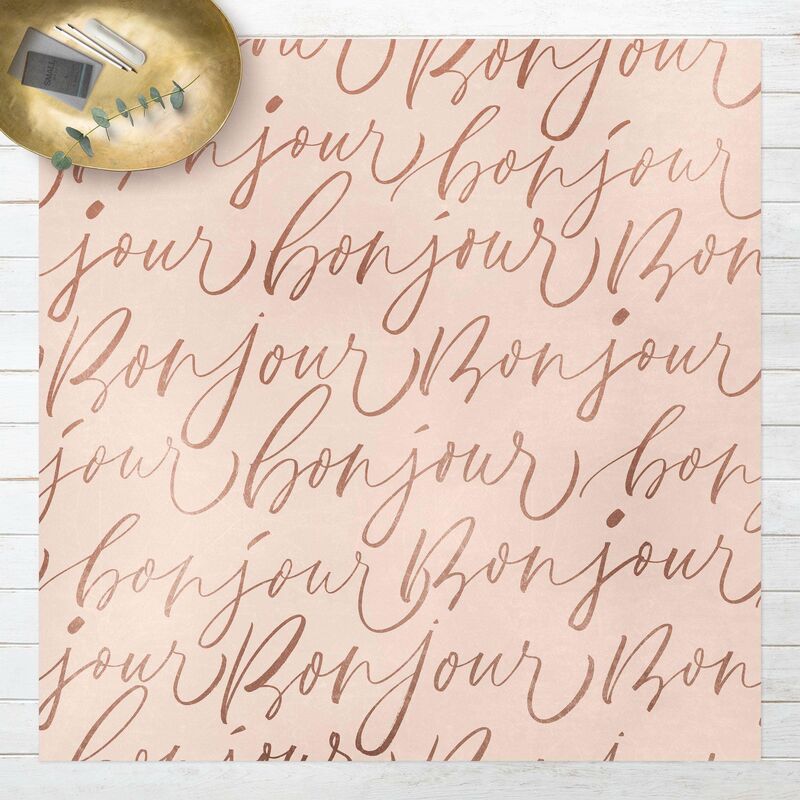 Bonjour
SMALL
bonjour bonjour
jour bonjour Bon
Bonjour Bonjour
jour bonjour bon
bonjour Bonjour
jour Bonjour Bon